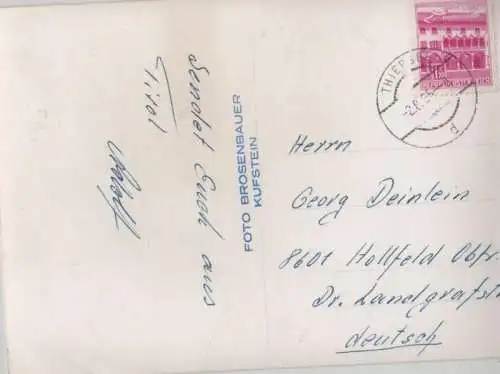 Sendet Euch aus
Tirol
FOTO BROSENBAUER
KUFSTEIN
THIERS
Herrn
Georg Deinlein
8601 Hollfeld Obfr.
Dr. Landgrafst
deutsch